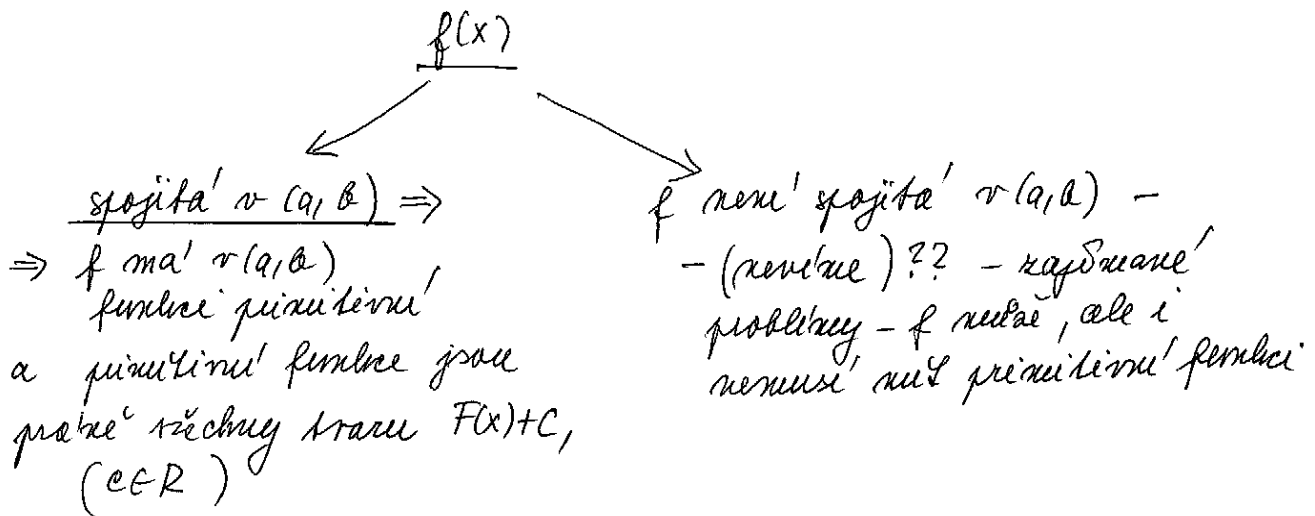 f(x)
spojitá v (a, b) ⇒
⇒ f má v (a, b)
funkci primitivní
a primitivní funkce jsou
právě všechny tvaru F(x)+C,
(c∈R)
f není spojitá v (a, b) –
– (nevíme) ?? – zajímavé
problémy – f může, ale i
nemusí mít primitivní funkci